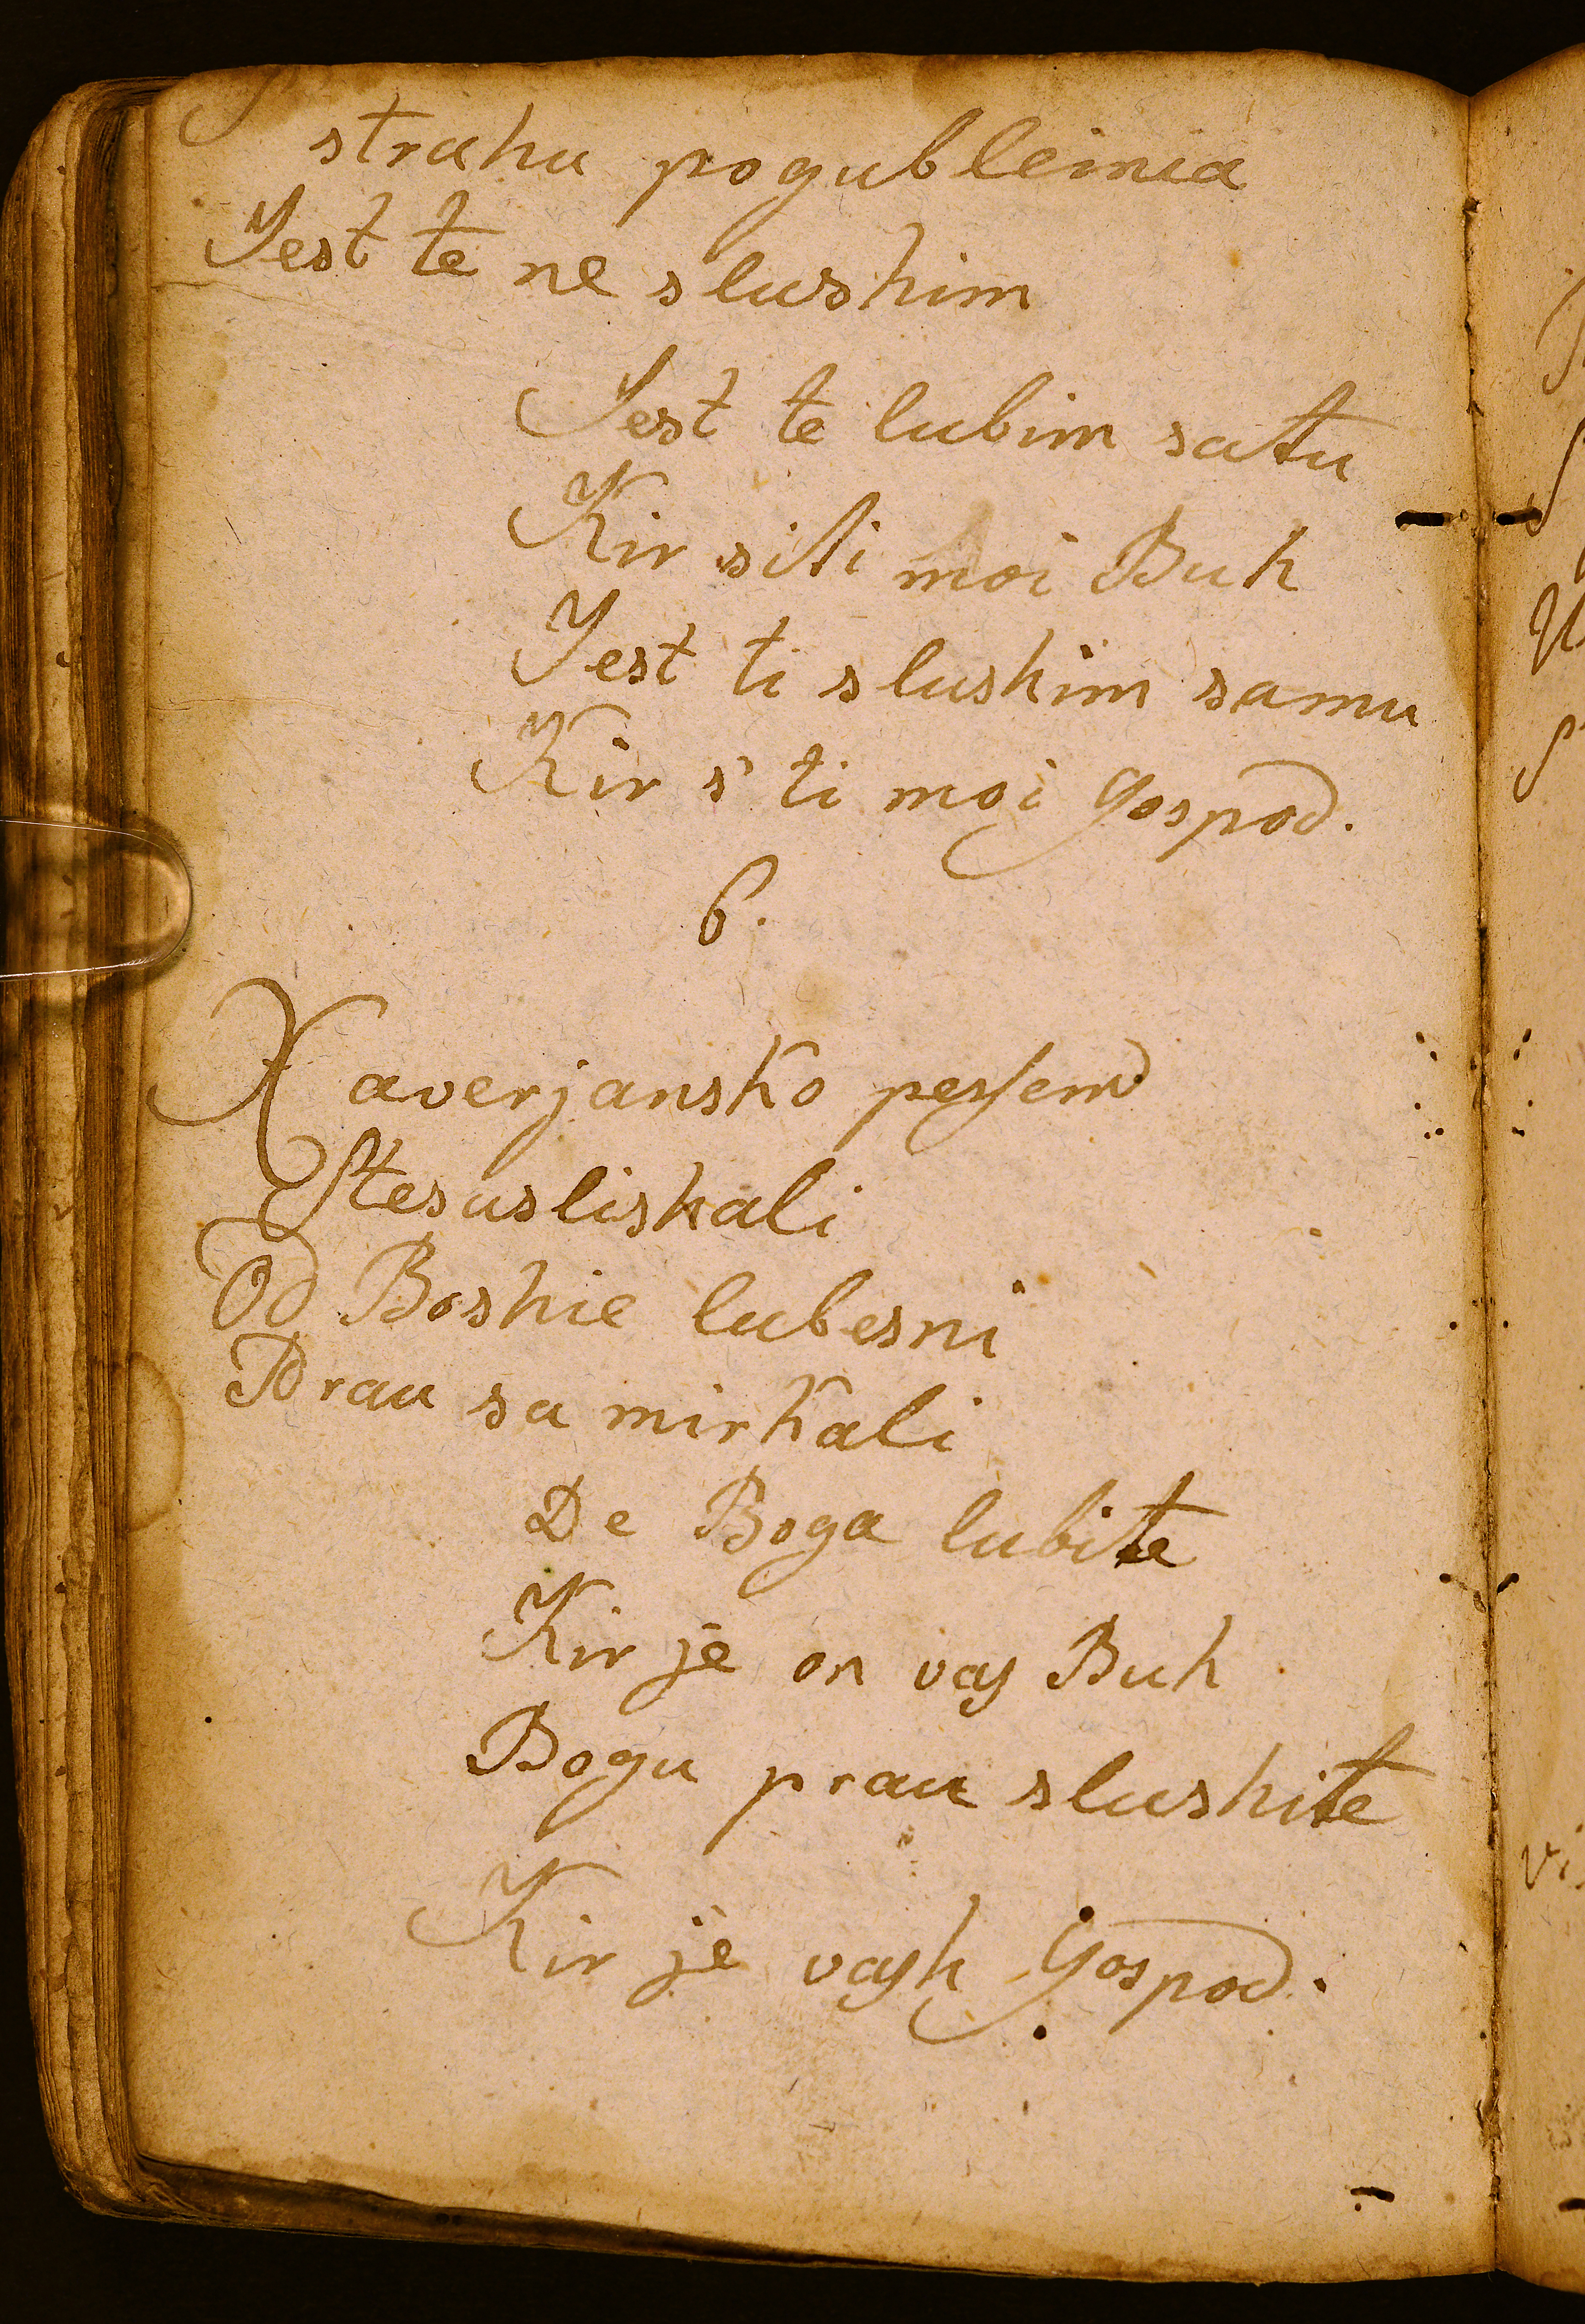 strahu pogubleinia
Jest te ne slushim
Jest te lubim satu
Kir si ti moi Buh
Jest ti slushim samu
Kir s' ti moi Gospod.
6.
Xaverjansko pessem
Ste suslishali
Od Boshie lubesni
Prau sa mirkali
De Boga lubite
Kir je on vas Buh
Bogu prau slushite
Kir je vash Gospod.